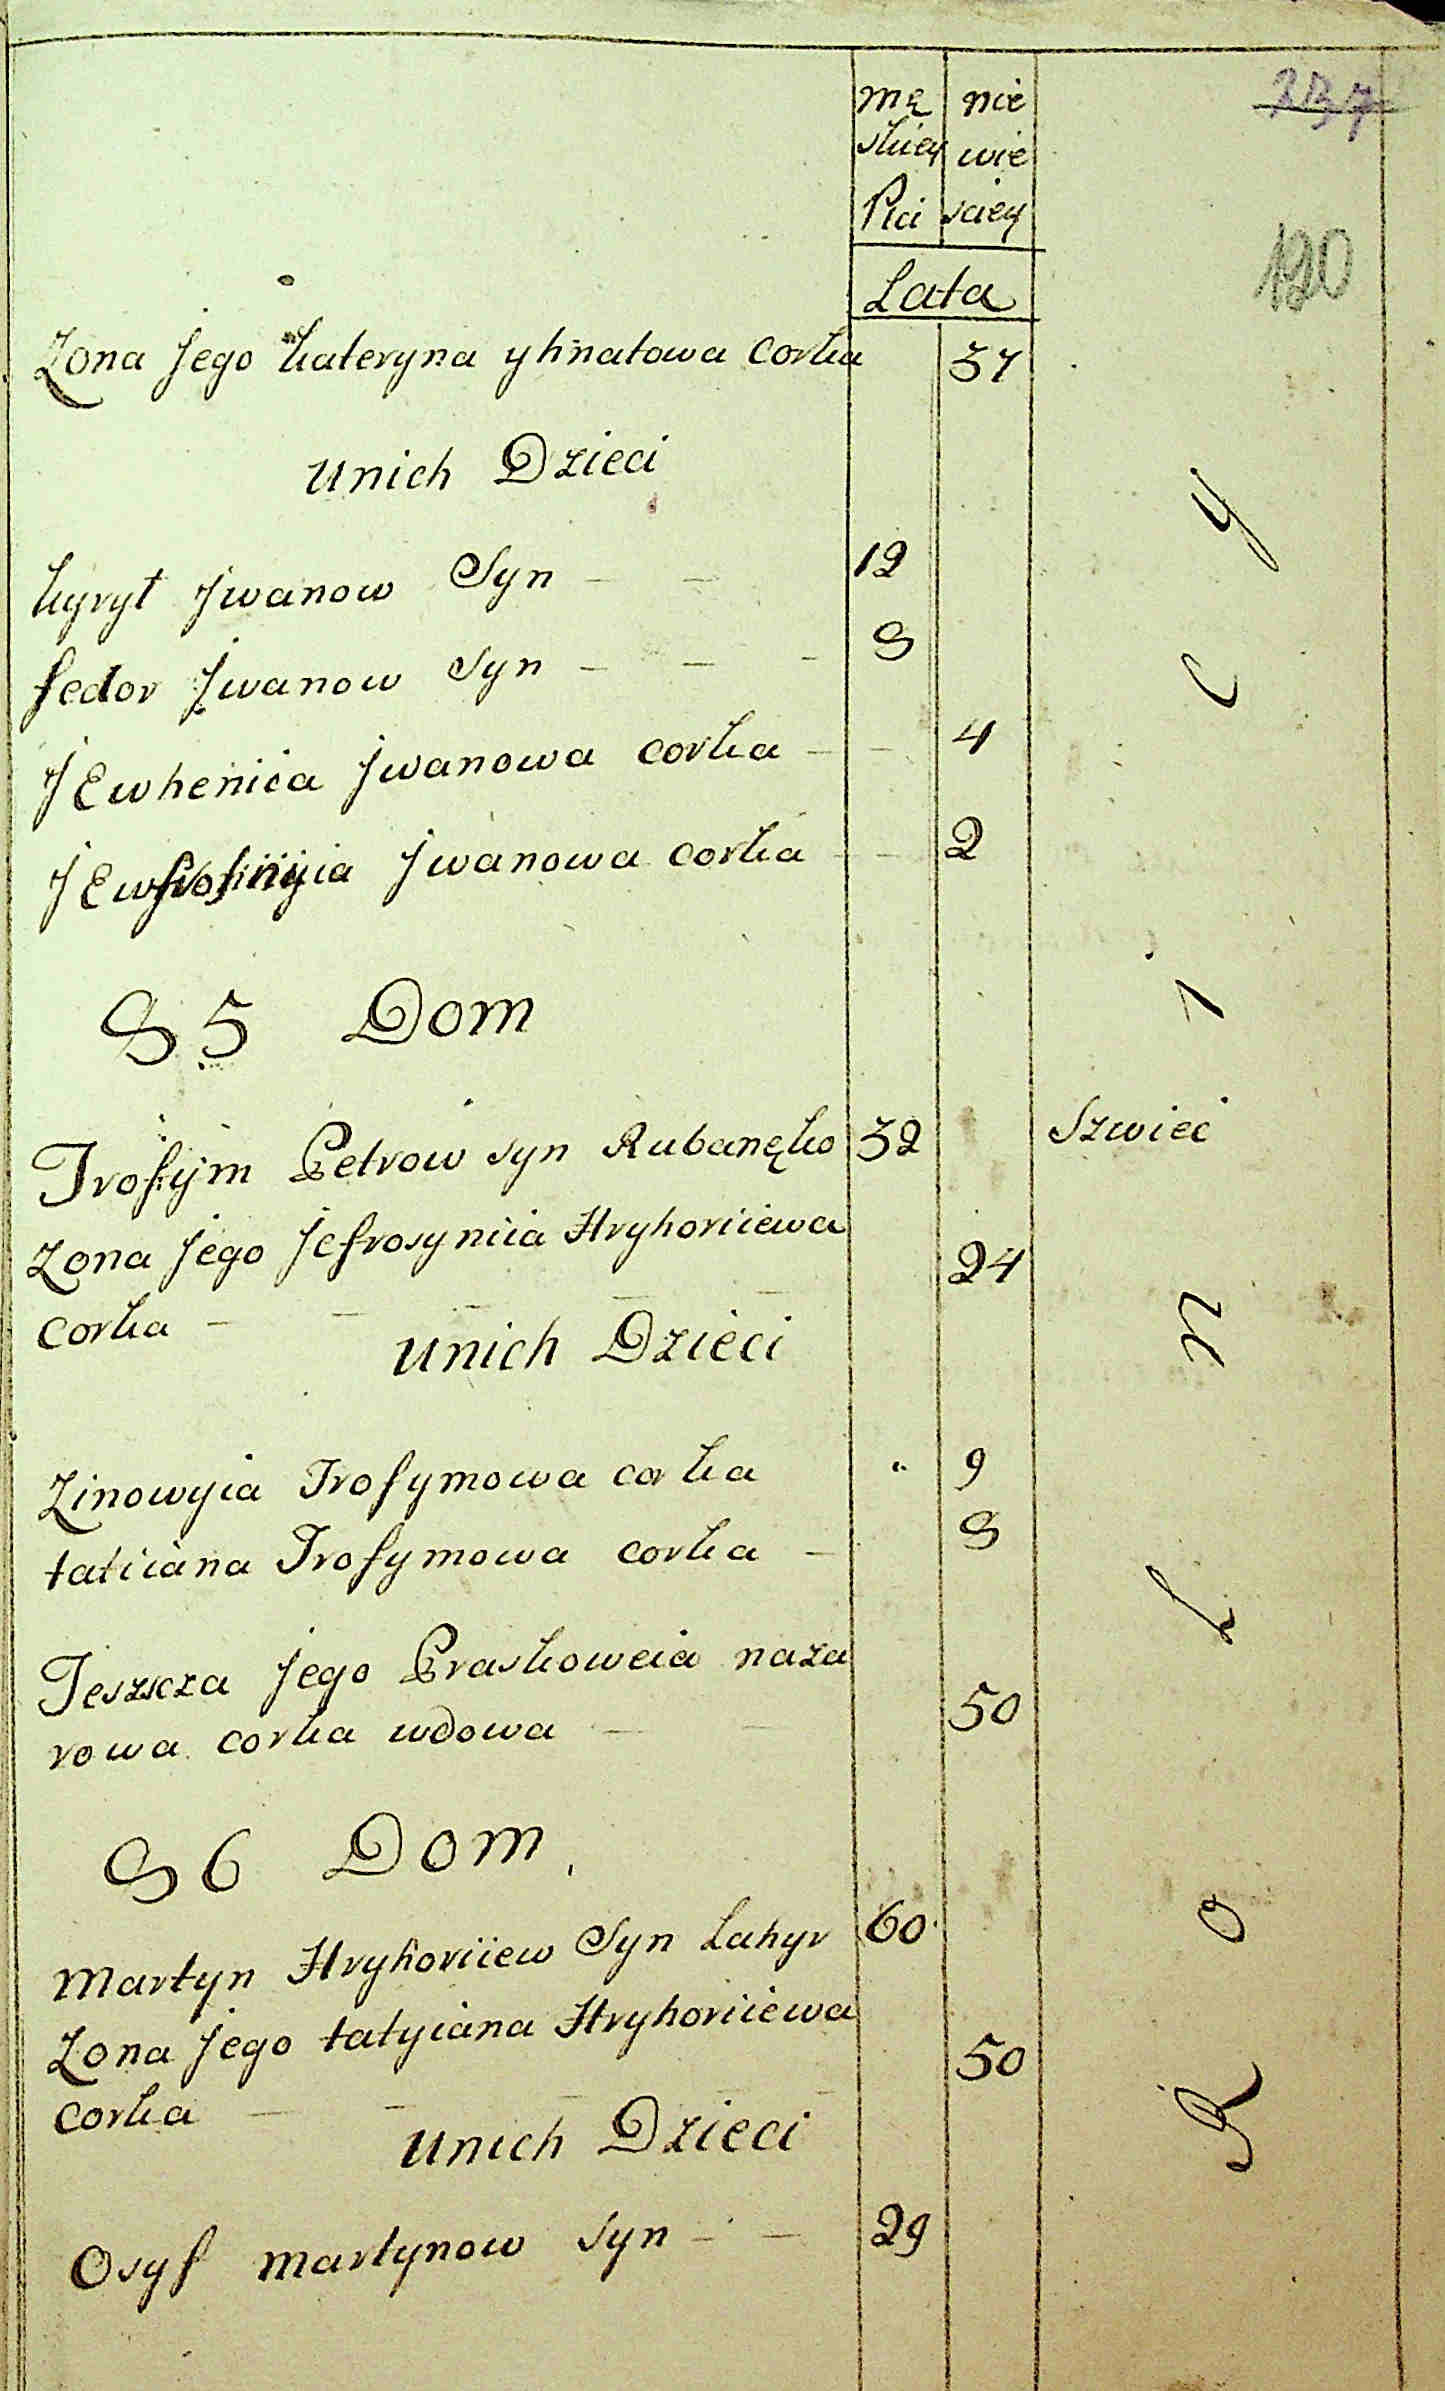 237
120
mę nie
skiey wie
Płci sciey
Lata
Zona jego kateryna yhnatowa corka 37
unich Dzieci
kyrył jwanow Syn 12
fedor jwanow Syn 8
jEwhenica jwanowa corka 4
jEwfrosiniyia jwanowa corka 2
85 Dom
Trofym Petrow syn Rubanęko 32 Szwiec
Zona jego jefrosyniia Hryhoriiewa
corka 24
unich Dzieci
Zinowyia Trofymowa corka 9
tatiiana Trofymowa corka 8
Teszcza jego Praskoweia naza
rowa corka wdowa 50
86 Dom
Martyn Hryhoriiew Syn Lahyr 60
Zona jego tatyiana Hryhoriiewa
corka 50
unich Dzieci
Osyf martynow syn 29
Rolnicy